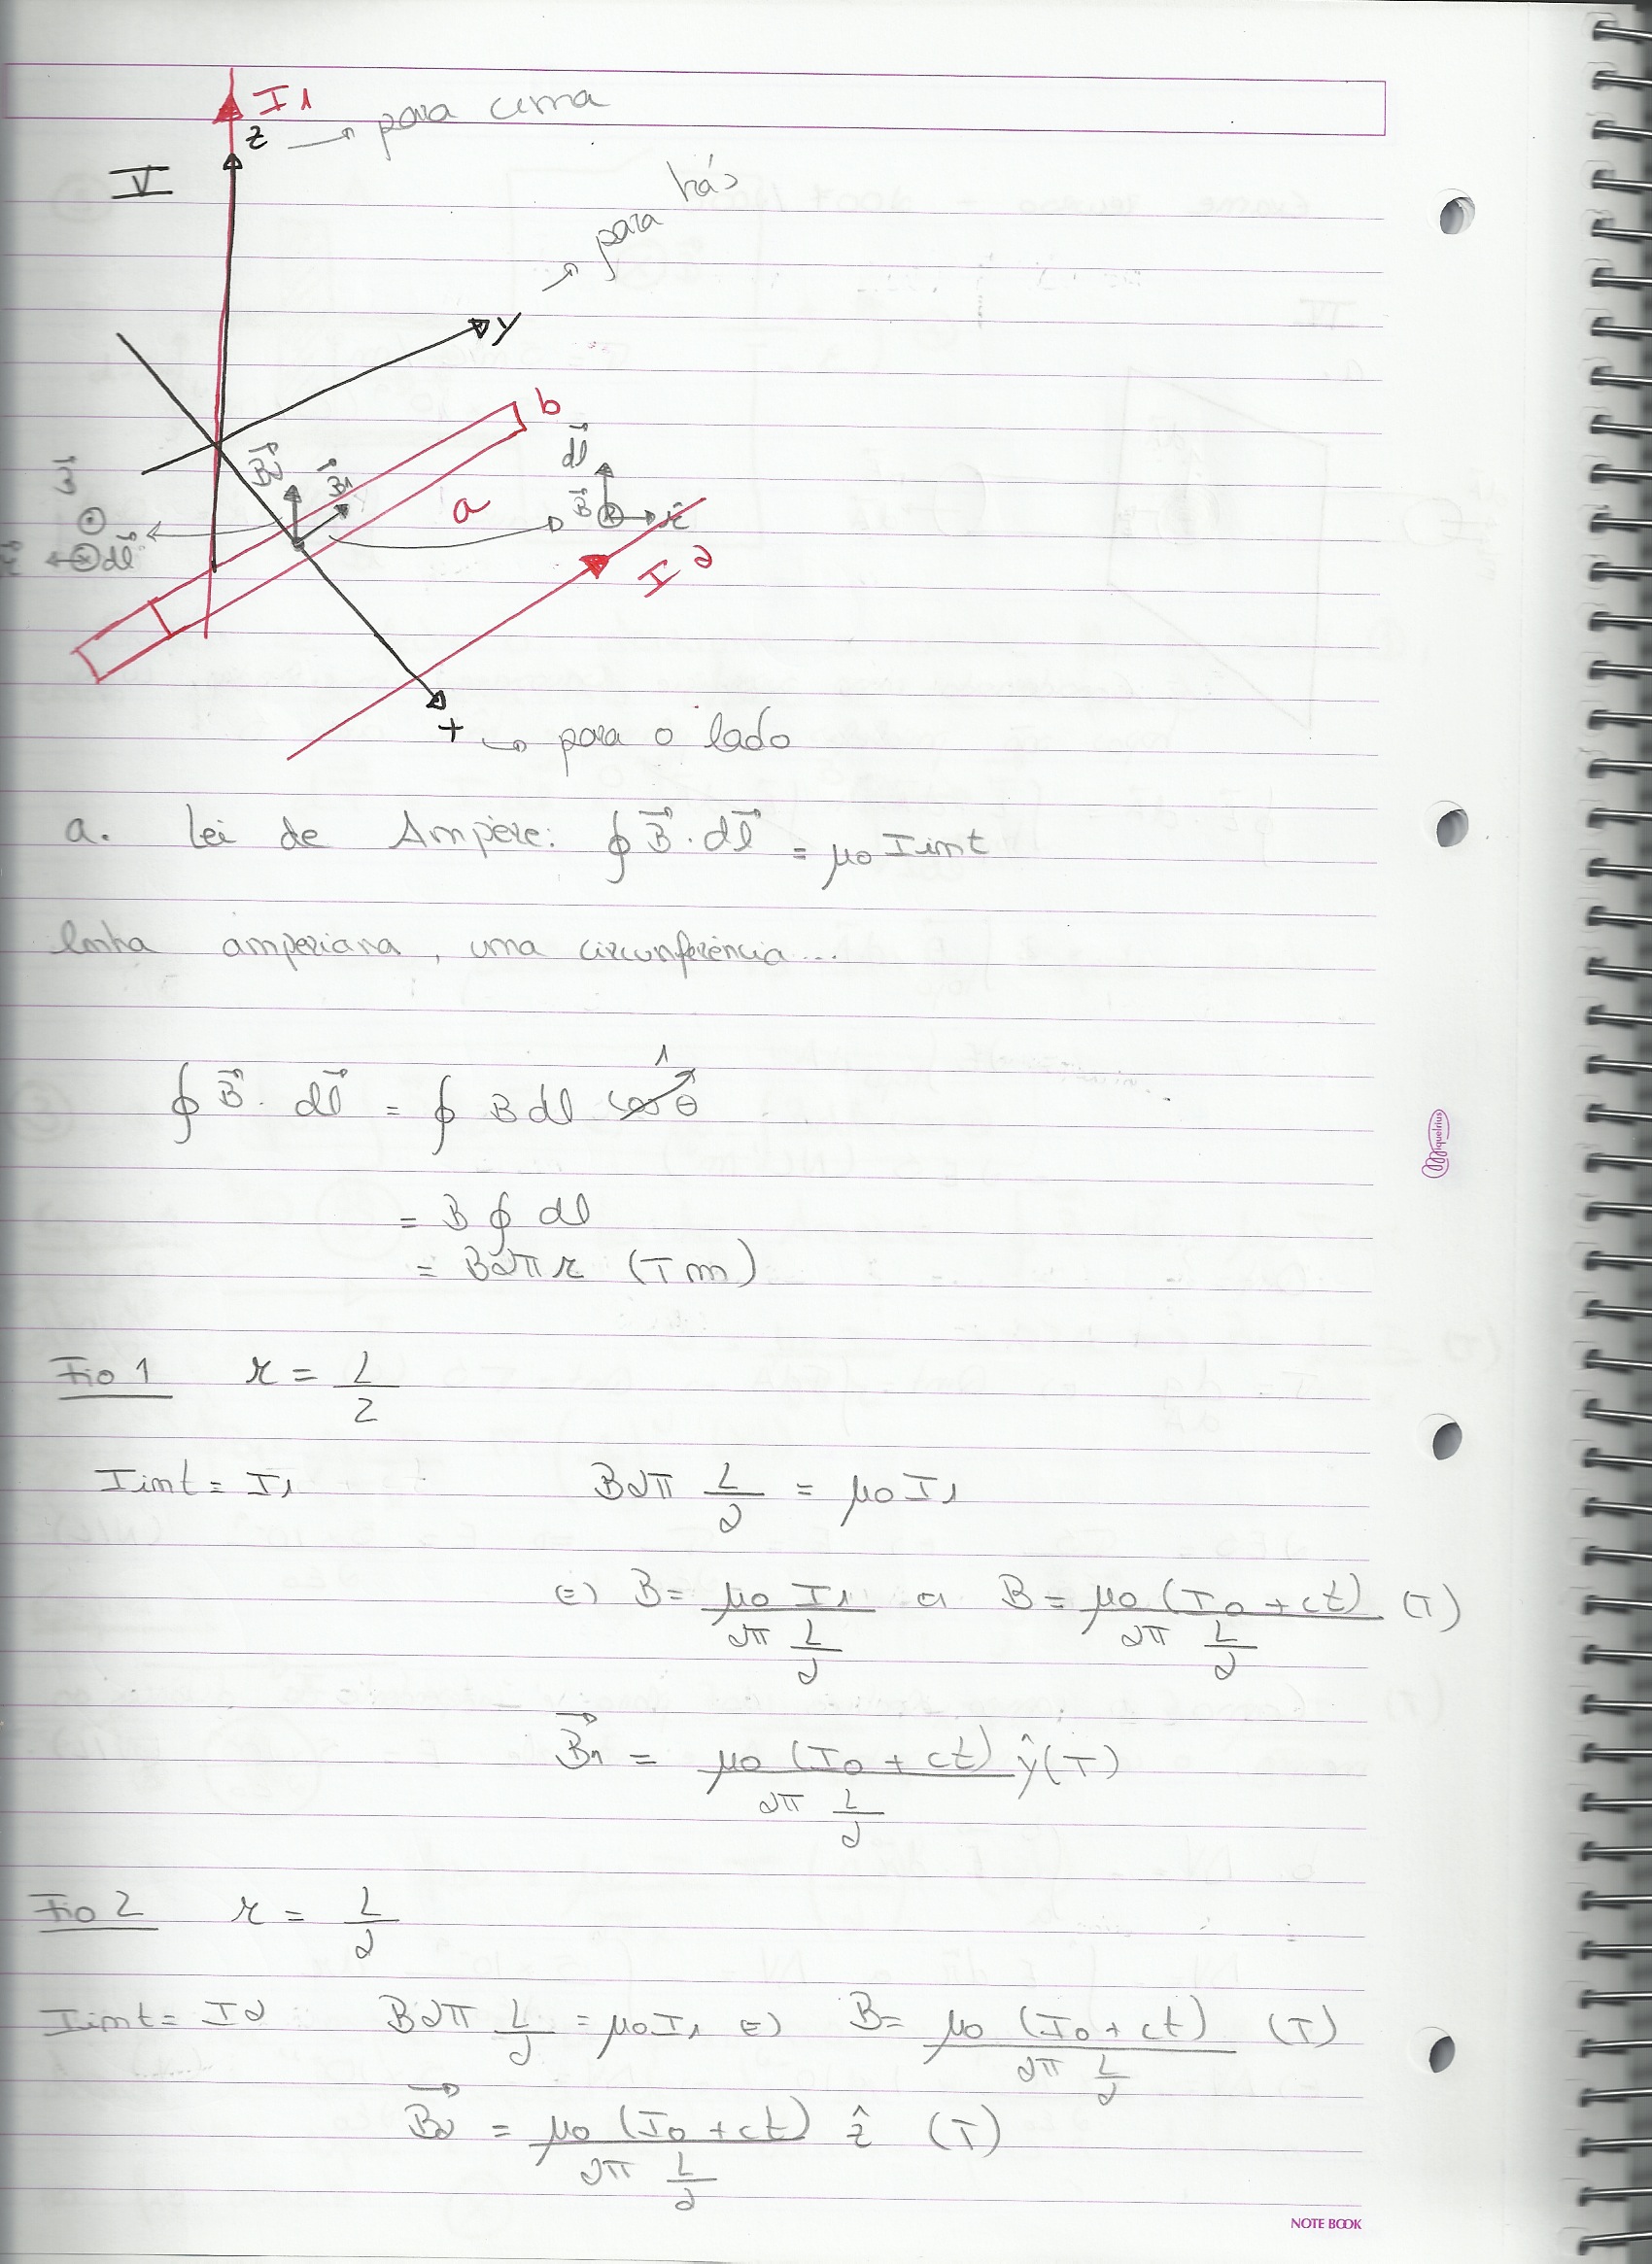 I1
z → para cima
V
para trás
y
b
B2 B1
dl
a
B r
dl
I2
x → para o lado
a. Lei de Ampère: ∮ B⃗ . dl⃗ = μ0 Iint
linha amperiana, uma circunferência...
∮ B⃗ . dl⃗ = ∮ B dl cos θ 1
= B ∮ dl
= B2π r (T m)
Fio 1 r = L/2
Iint = I1 B2π L/2 = μ0 I1
(=) B = μ0 I1 / 2π L/2 (=) B = μ0 (I0 + ct) / 2π L/2 (T)
B⃗1 = μ0 (I0 + ct) / 2π L/2 ŷ (T)
Fio 2 r = L/2
Iint = I2 B2π L/2 = μ0 I1 (=) B = μ0 (I0 + ct) / 2π L/2 (T)
B⃗2 = μ0 (I0 + ct) / 2π L/2 ẑ (T)
miquelrius
NOTE BOOK